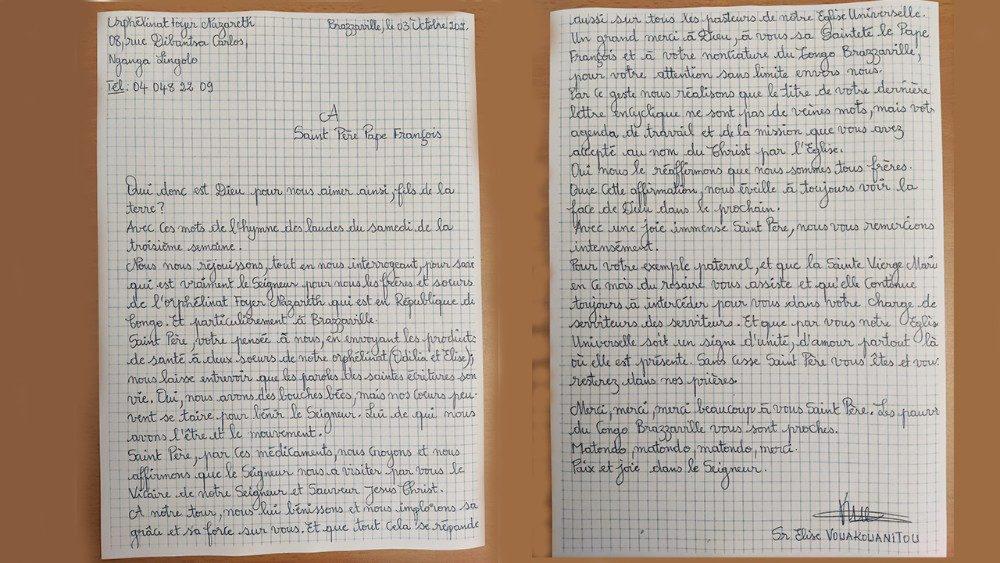 Orphélinat Foyer Nazareth
Brazzaville, le 03 Octobre 202
08, rue Dibantsa Carlos,
Nganga Lingolo
Tél: 04 048 22 09
A
Saint Père Pape François
Qui donc est Dieu pour nous aimer ainsi, fils de la
terre?
Avec ces mots de l'hymne des laudes du samedi de la
troisième semaine.
Nous nous réjouissons, tout en nous interrogeant, pour savoi
qui est vraiment le Seigneur pour nous les frères et soeurs
de l'orphélinat Foyer Nazareth qui est en République de
Congo. Et particulièrement à Brazzaville.
Saint Père, votre pensée à nous, en envoyant les produits
de santé à deux soeurs de notre orphélinat (Odilia et Elise),
nous laisse entrevoir que les paroles des saintes écritures son
vie. Oui, nous avons des bouches bées, mais nos coeurs peu-
vent se taire pour bénir le Seigneur. Lui de qui nous
avons l'être et le mouvement.
Saint Père, par ces médicaments, nous croyons et nous
affirmons que le Seigneur nous a visiter par vous le
Vicaire de notre Seigneur et Sauveur Jesus Christ.
A notre tour, nous lui bénissons et nous implorons sa
grâce et sa force sur vous. Et que tout cela se répande
aussi sur tous les pasteurs de notre Eglise Universelle.
Un grand merci à Dieu, à vous sa Sainteté le Pape
François et à votre nontiature du Congo Brazzaville,
pour votre attention sans limite envers nous.
Par ce geste nous réalisons que le titre de votre dernière
lettre encyclique ne sont pas de veines mots, mais votr
agenda de travail et de la mission que vous avez
accepté au nom du Christ par l'Eglise.
Oui nous le réaffirmons que nous sommes tous frères.
Que cette affirmation, nous éveille à toujours voir la
face de Dieu dans le prochain.
Avec une joie immense Saint Père, nous vous remercions
intensément.
Pour votre exemple paternel, et que la Sainte Vierge Mari
en ce mois du rosaire vous assiste et qu'elle continue
toujours à intercéder pour vous dans votre charge de
serviteurs des serviteurs. Et que par vous notre Eglise
Universelle soit un signe d'unité, d'amour partout là
où elle est présente. Sans cesse Saint Père vous êtes et vous
resterez dans nos prières.
Merci, merci, merci beaucoup à vous Saint Père. Les pauvr
du Congo Brazzaville vous sont proches.
Matondo, matondo, matondo, merci.
Paix et joie dans le Seigneur.
Sr Elise VOUAKOUANITOU